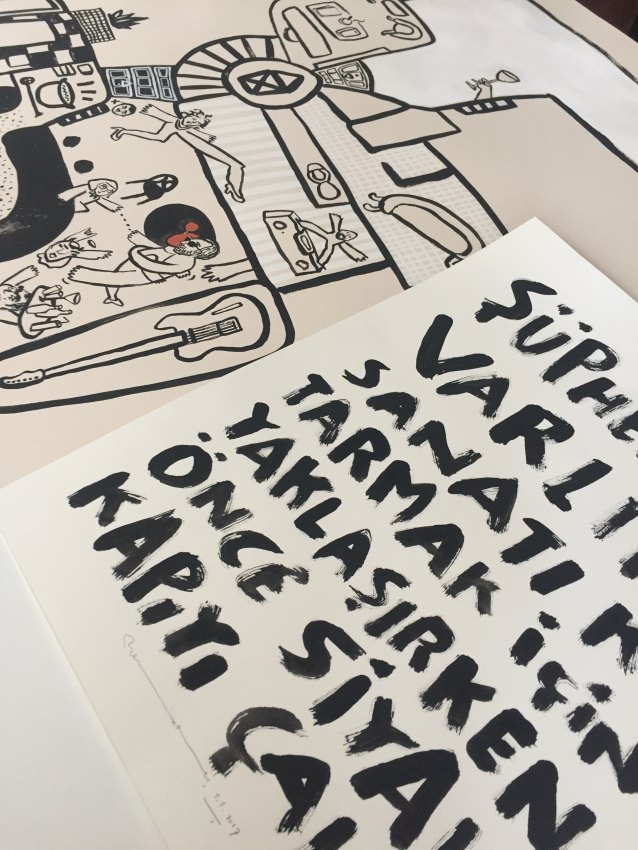 ŞÜPHE
VARLI
SANATI K
TARMAK İÇİN
YAKLAŞIRKEN
ÖNCE SİYA
KAPIYI ÇA